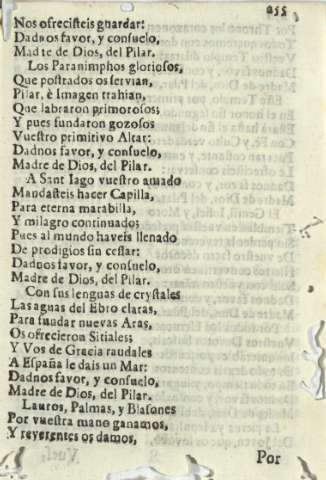 255
Nos ofrecisteis guardar:
Dadnos favor, y consuelo,
Madre de Dios, del Pilar.
Los Paranimphos gloriosos,
Que postrados os servian,
Pilar, è Imagen trahian,
Que labraron primorosos;
Y pues fundaron gozosos
Vuestro primitivo Altar:
Dadnos favor, y consuelo,
Madre de Dios, del Pilar.
A Sant Iago vuestro amado
Mandasteis hacer Capilla,
Para eterna marabilla,
Y milagro continuado;
Pues al mundo haveis llenado
De prodigios sin cessar:
Dadnos favor, y consuelo,
Madre de Dios, del Pilar.
Con sus lenguas de crystales
Las aguas del Ebro claras,
Para fundar nuevas Aras,
Os ofrecieron Sitiales;
Y Vos de Gracia raudales
A España le dais un Mar:
Dadnos favor, y consuelo,
Madre de Dios, del Pilar.
Lauros, Palmas, y Blasones
Por vuestra mano ganamos,
Y reverentes os damos,
Por